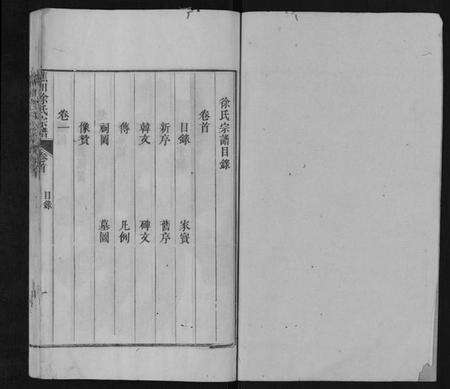 徐氏宗譜目錄
卷首
目錄 家寶
新序 舊序
韓文 碑文
傳 凡例
祠圖 墓圖
像贊
卷一
徐氏宗譜 卷首 目錄